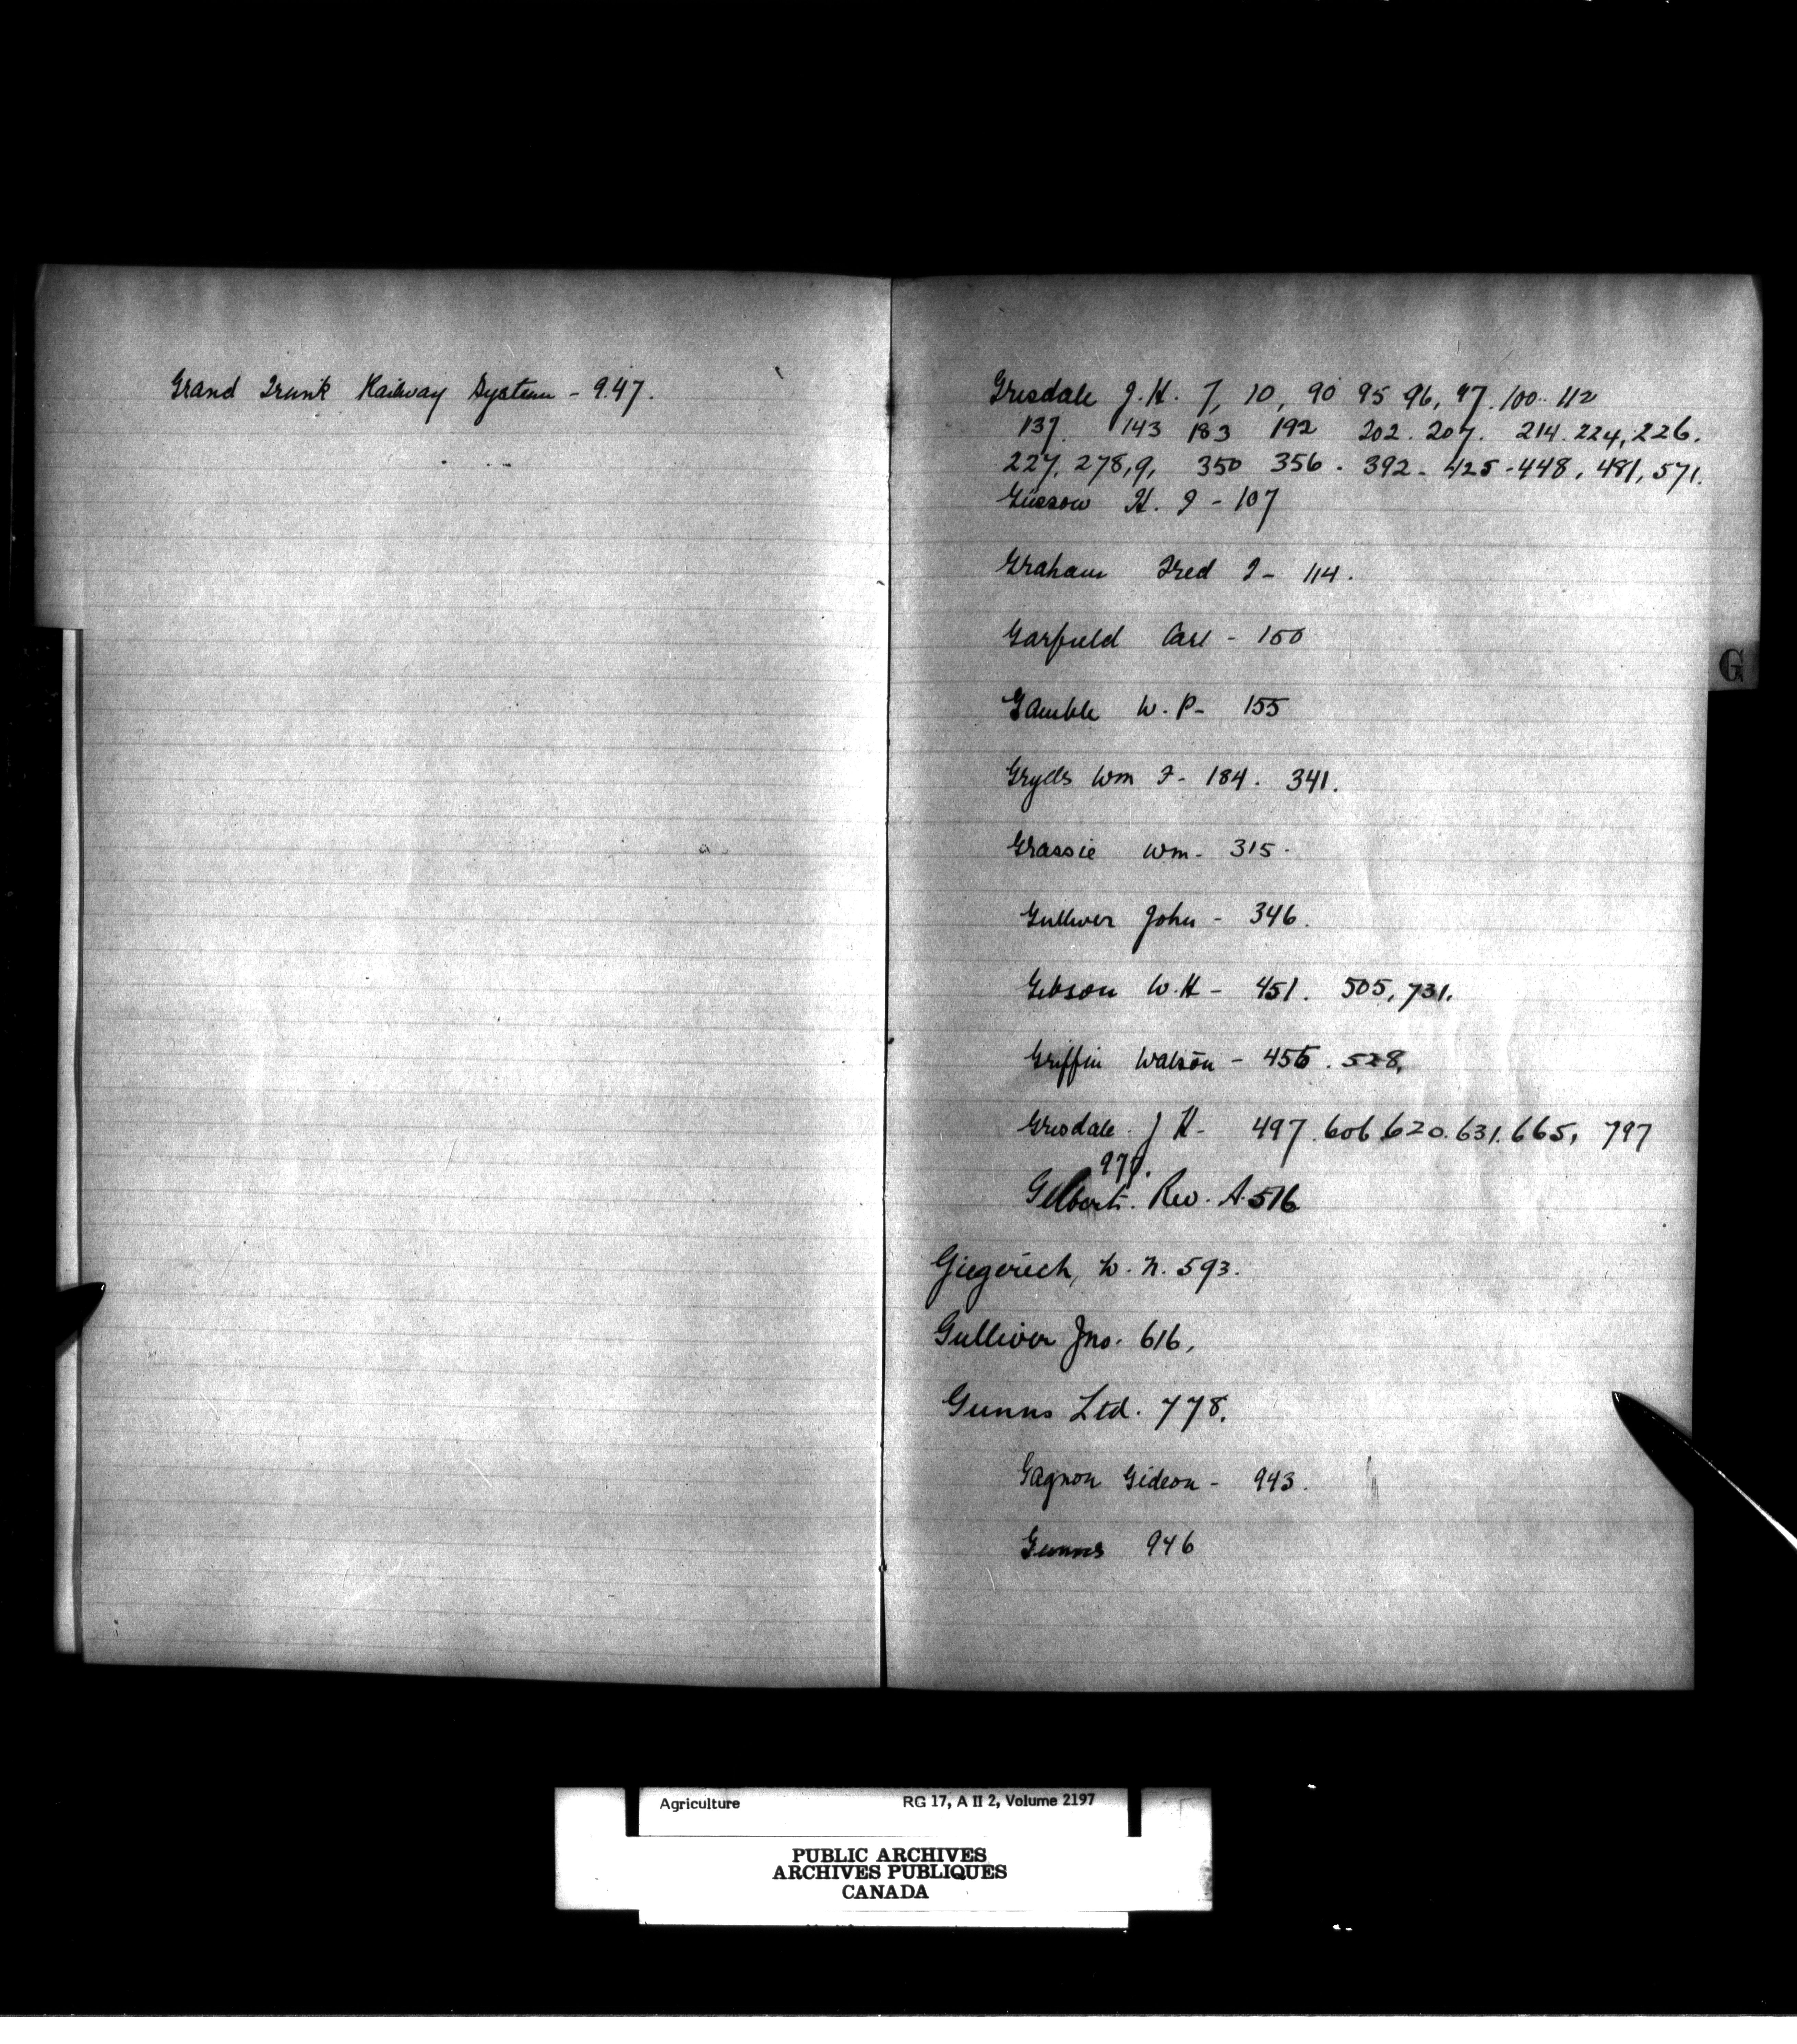 Grand Trunk Railway System - 947.
Grisdale J. H. 7, 10, 90 95 96, 97. 100. 112
137. 143 183 192 202. 207. 214. 224, 226.
227, 278,9, 350 356. 392. 425 - 448, 481, 571.
Güssow H. T - 107
Graham Fred T - 114.
Garfield Carl - 150
Gamble W. P - 155
Grylls Wm F - 184. 341.
Grassie Wm - 315.
Gulliver John - 346.
Gibson W. H - 451. 505, 731.
Griffin Watson - 455. 528,
Grisdale J H - 497. 606 620. 631. 665, 797
977.
Gilbert. Rev. A. 516
Giegerich, W. N. 593.
Gulliver Jno. 616,
Gunns Ltd. 778.
Gagnon Gideon - 943.
Gunns 946
G
Agriculture RG 17, A II 2, Volume 2197
PUBLIC ARCHIVES
ARCHIVES PUBLIQUES
CANADA